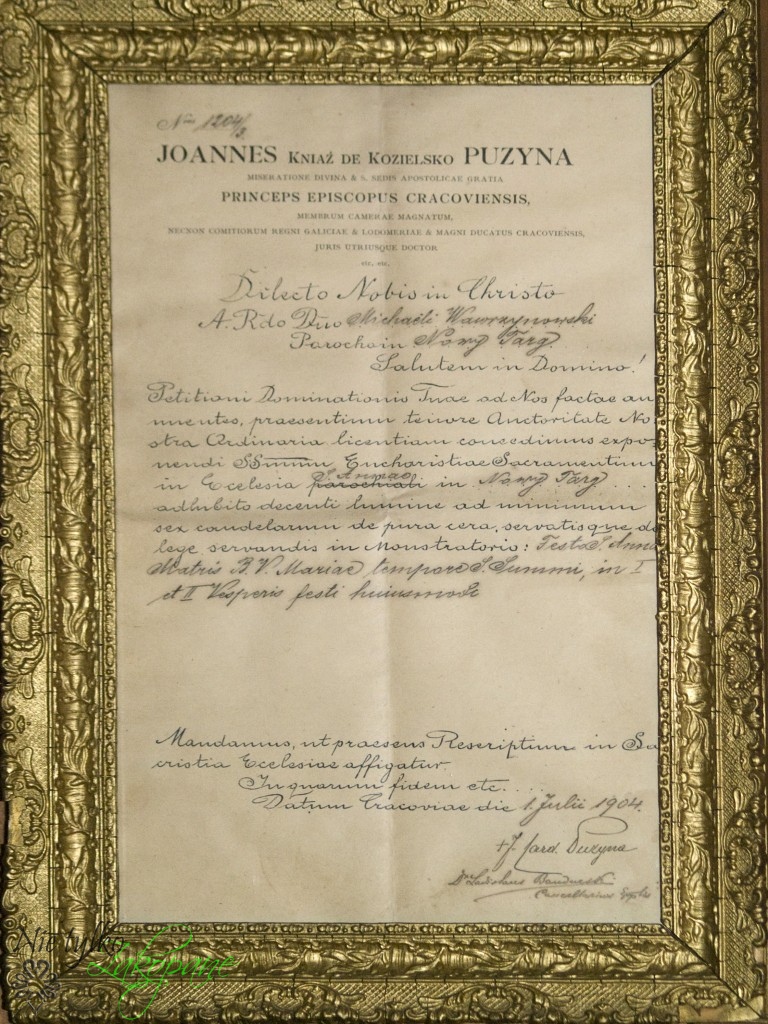 Nrus 1204/3.
JOANNES KNIAŹ DE KOZIELSKO PUZYNA
MISERATIONE DIVINA & S. SEDIS APOSTOLICAE GRATIA
PRINCEPS EPISCOPUS CRACOVIENSIS,
MEMBRUM CAMERAE MAGNATUM,
NECNON COMITIORUM REGNI GALICIAE & LODOMERIAE & MAGNI DUCATUS CRACOVIENSIS,
JURIS UTRIUSQUE DOCTOR
etc. etc.
Dilecto Nobis in Christo
A. Rdo Dno Michaëli Wawrzynowski
Parocho in Nowy Targ.
Salutem in Domino!
Petitioni Dominationis Tuae ad Nos factae an
nuentes, praesentium tenore Auctoritate No
stra Ordinaria licentiam concedimus expo-
nendi SSmum Eucharistiae Sacramentum
in Ecclesia parochiali S. Annae in Nowy Targ ....
adhibito decenti lumine ad minimum
sex candelarum de pura cera, servatisque de
lege servandis in Monstratorio: Festo S. Annae
Matris B. V. Mariae tempore S. Summi, in I
et II Vesperis festi huiusmodi
Mandamus, ut praesens Rescriptum in Sa
cristia Ecclesiae affigatur.
In quorum fidem etc. ...
Datum Cracoviae die 1. Julii 1904.
+ J. Card. Puzyna
Dr Ladislaus Bandurski
Cancellarius
Nie tylko
Zakopane